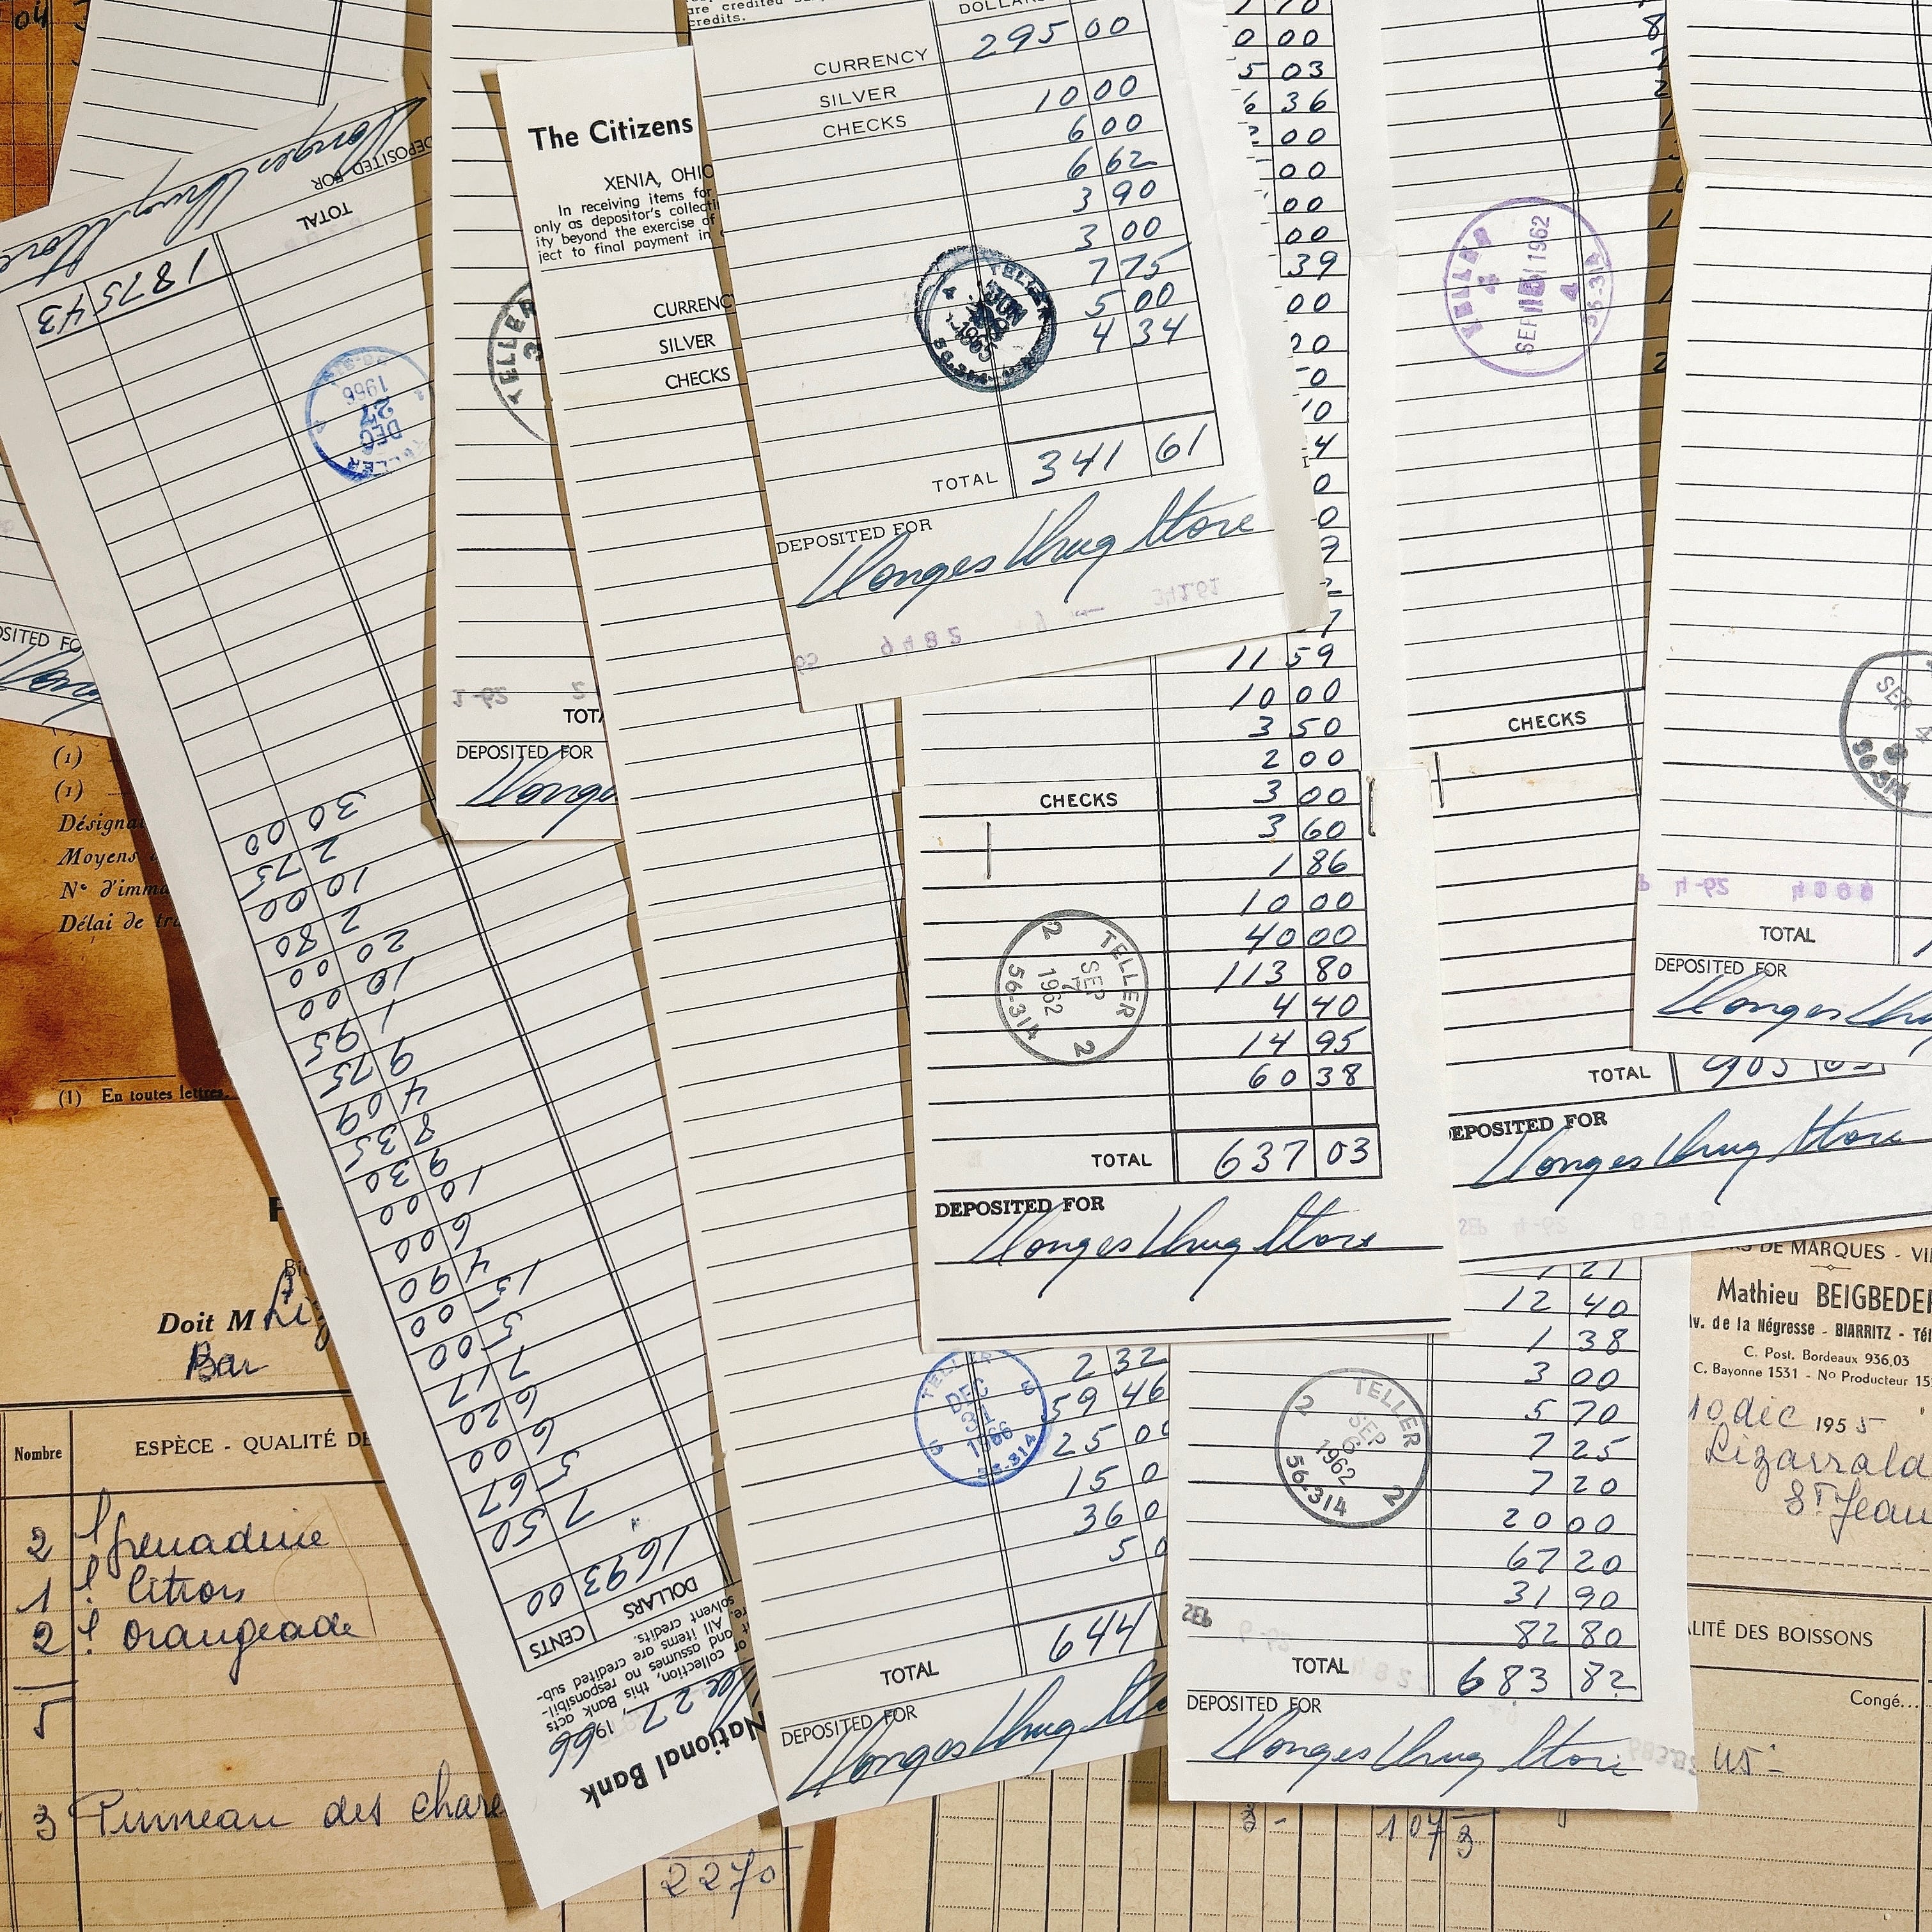 04
are credited
credits.
DOLLARS
CURRENCY 295 00
SILVER 10 00
CHECKS 6 00
6 62
3 90
3 00
7 75
5 00
4 34
TELLER
JUN
1965
TOTAL 341 61
DEPOSITED FOR
Donges Drug Store
9482
341.61
The Citizens
XENIA, OHIO
In receiving items for
only as depositor's collecti
ity beyond the exercise of
ject to final payment in
CURRENC
SILVER
CHECKS
TELLER
3
0 00
5 03
6 36
00
00
00
00
39
00
11 59
10 00
3 50
2 00
CHECKS 3 00
3 60
1 86
10 00
40 00
113 80
4 40
14 95
60 38
TELLER 2
SEP 7
1962
56-314 2
TOTAL 637 03
DEPOSITED FOR
Donges Drug Store
TELLER
4
SEP 1962
4
56-314
CHECKS
TOTAL 905
DEPOSITED FOR
Donges Drug Store
SEP
4
3
56-314
TOTAL
DEPOSITED FOR
Donges Dru
DEPOSITED FOR
Donges Drug Store
TOTAL
1875 43
TELLER
DEC
27
1966
30 00
2 75
10 00
2 80
20 00
10 00
1 95
9 75
4 09
8 35
9 30
10 00
6 00
4 90
15 00
5 00
7 17
6 20
6 00
5 67
7 50
1693 00
DOLLARS CENTS
collection, this Bank acts
and assumes no responsibil-
All items are credited sub-
solvent credits.
Dec 27 1966
National Bank
1-62
TOTA
DEPOSITED FOR
Donges
OSITED FO
Dong
2 32
59 46
25 00
15 0
36 0
5 0
TELLER
DEC
31
1966
56-314
TOTAL 644
DEPOSITED FOR
Donges Drug Sto
1 21
12 40
1 38
3 00
5 70
7 25
7 20
20 00
67 20
31 90
82 80
TELLER 2
SEP 6
1962
56-314 2
TOTAL 683 82
DEPOSITED FOR
Donges Drug Store
683.82
(1)
(1)
Désignat
Moyens
N° d'imma
Délai de tra
(1) En toutes lettres.
Doit M Liz
Bar
Nombre ESPÈCE - QUALITÉ DE
2 l grenadine
1 l citron
2 l orangeade
5
3 Pinneau des chare
2270
DE MARQUES - VI
Mathieu BEIGBEDER
Av. de la Négresse - BIARRITZ - Tél
C. Post. Bordeaux 936.03
C. Bayonne 1531 - N° Producteur 15
10 dec 1955
Lizarrald
St Jean
LITÉ DES BOISSONS
Congé...
3 - 107 3